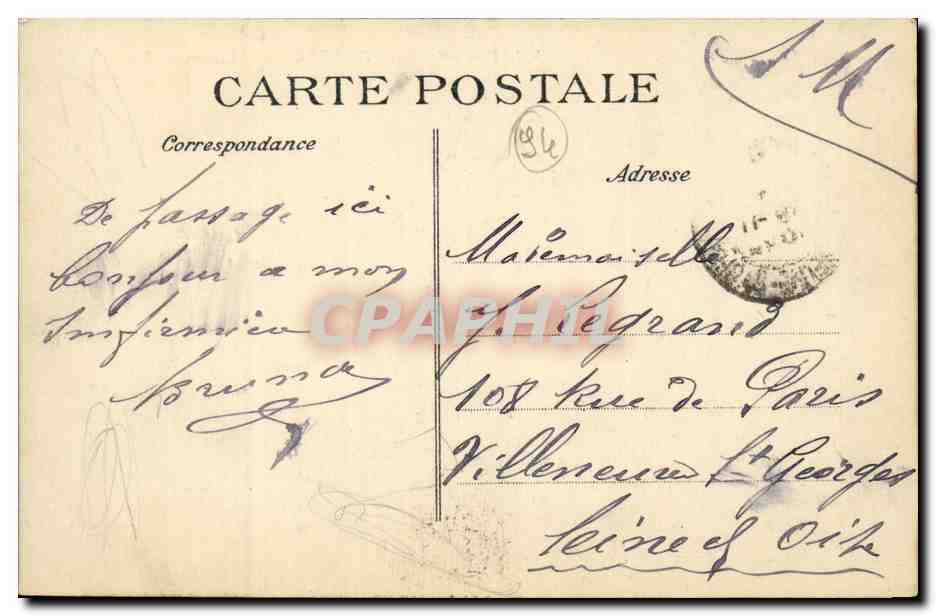 S M
CARTE POSTALE
94
Correspondance
Adresse
De passage ici
bonjour a mon
Infirmière
Bruno
Mademoiselle
Y. Legrand
108 Rue de Paris
Villeneuve St Georges
Seine et Oise
CPAPHIL